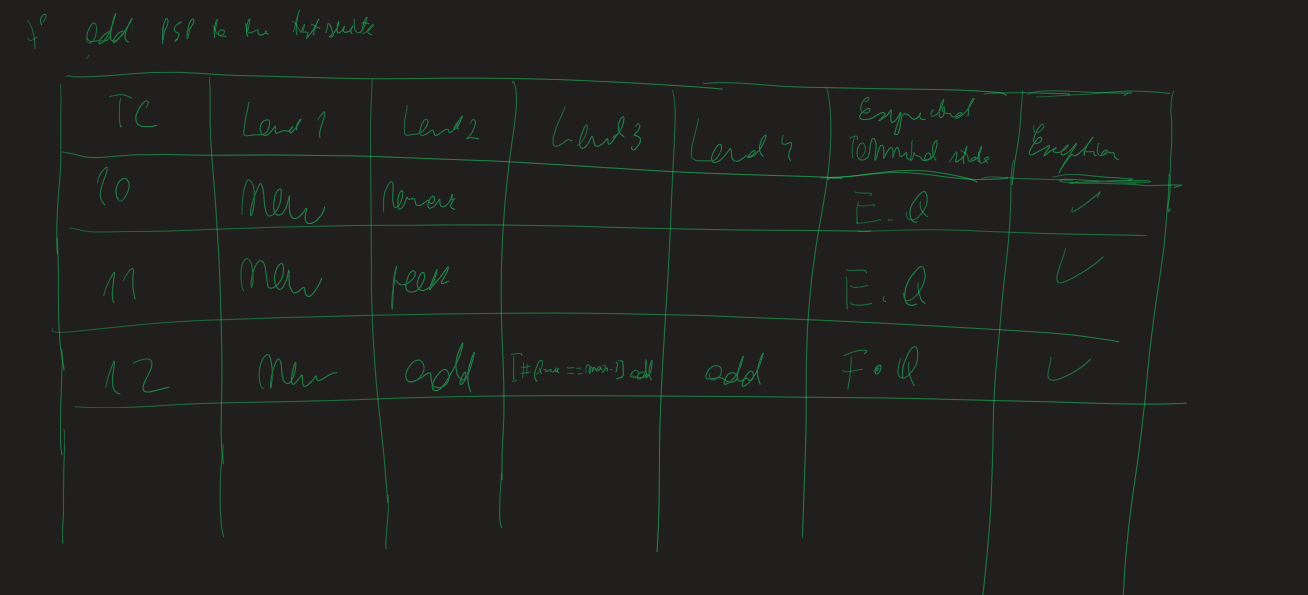 add PSP to the test suite
TC Level 1 Level 2 Level 3 Level 4 Expected Terminal state Exception
10 New Remove E.Q ✓
11 New peek E.Q ✓
12 New add [#Queue==max-1] add add F.Q ✓